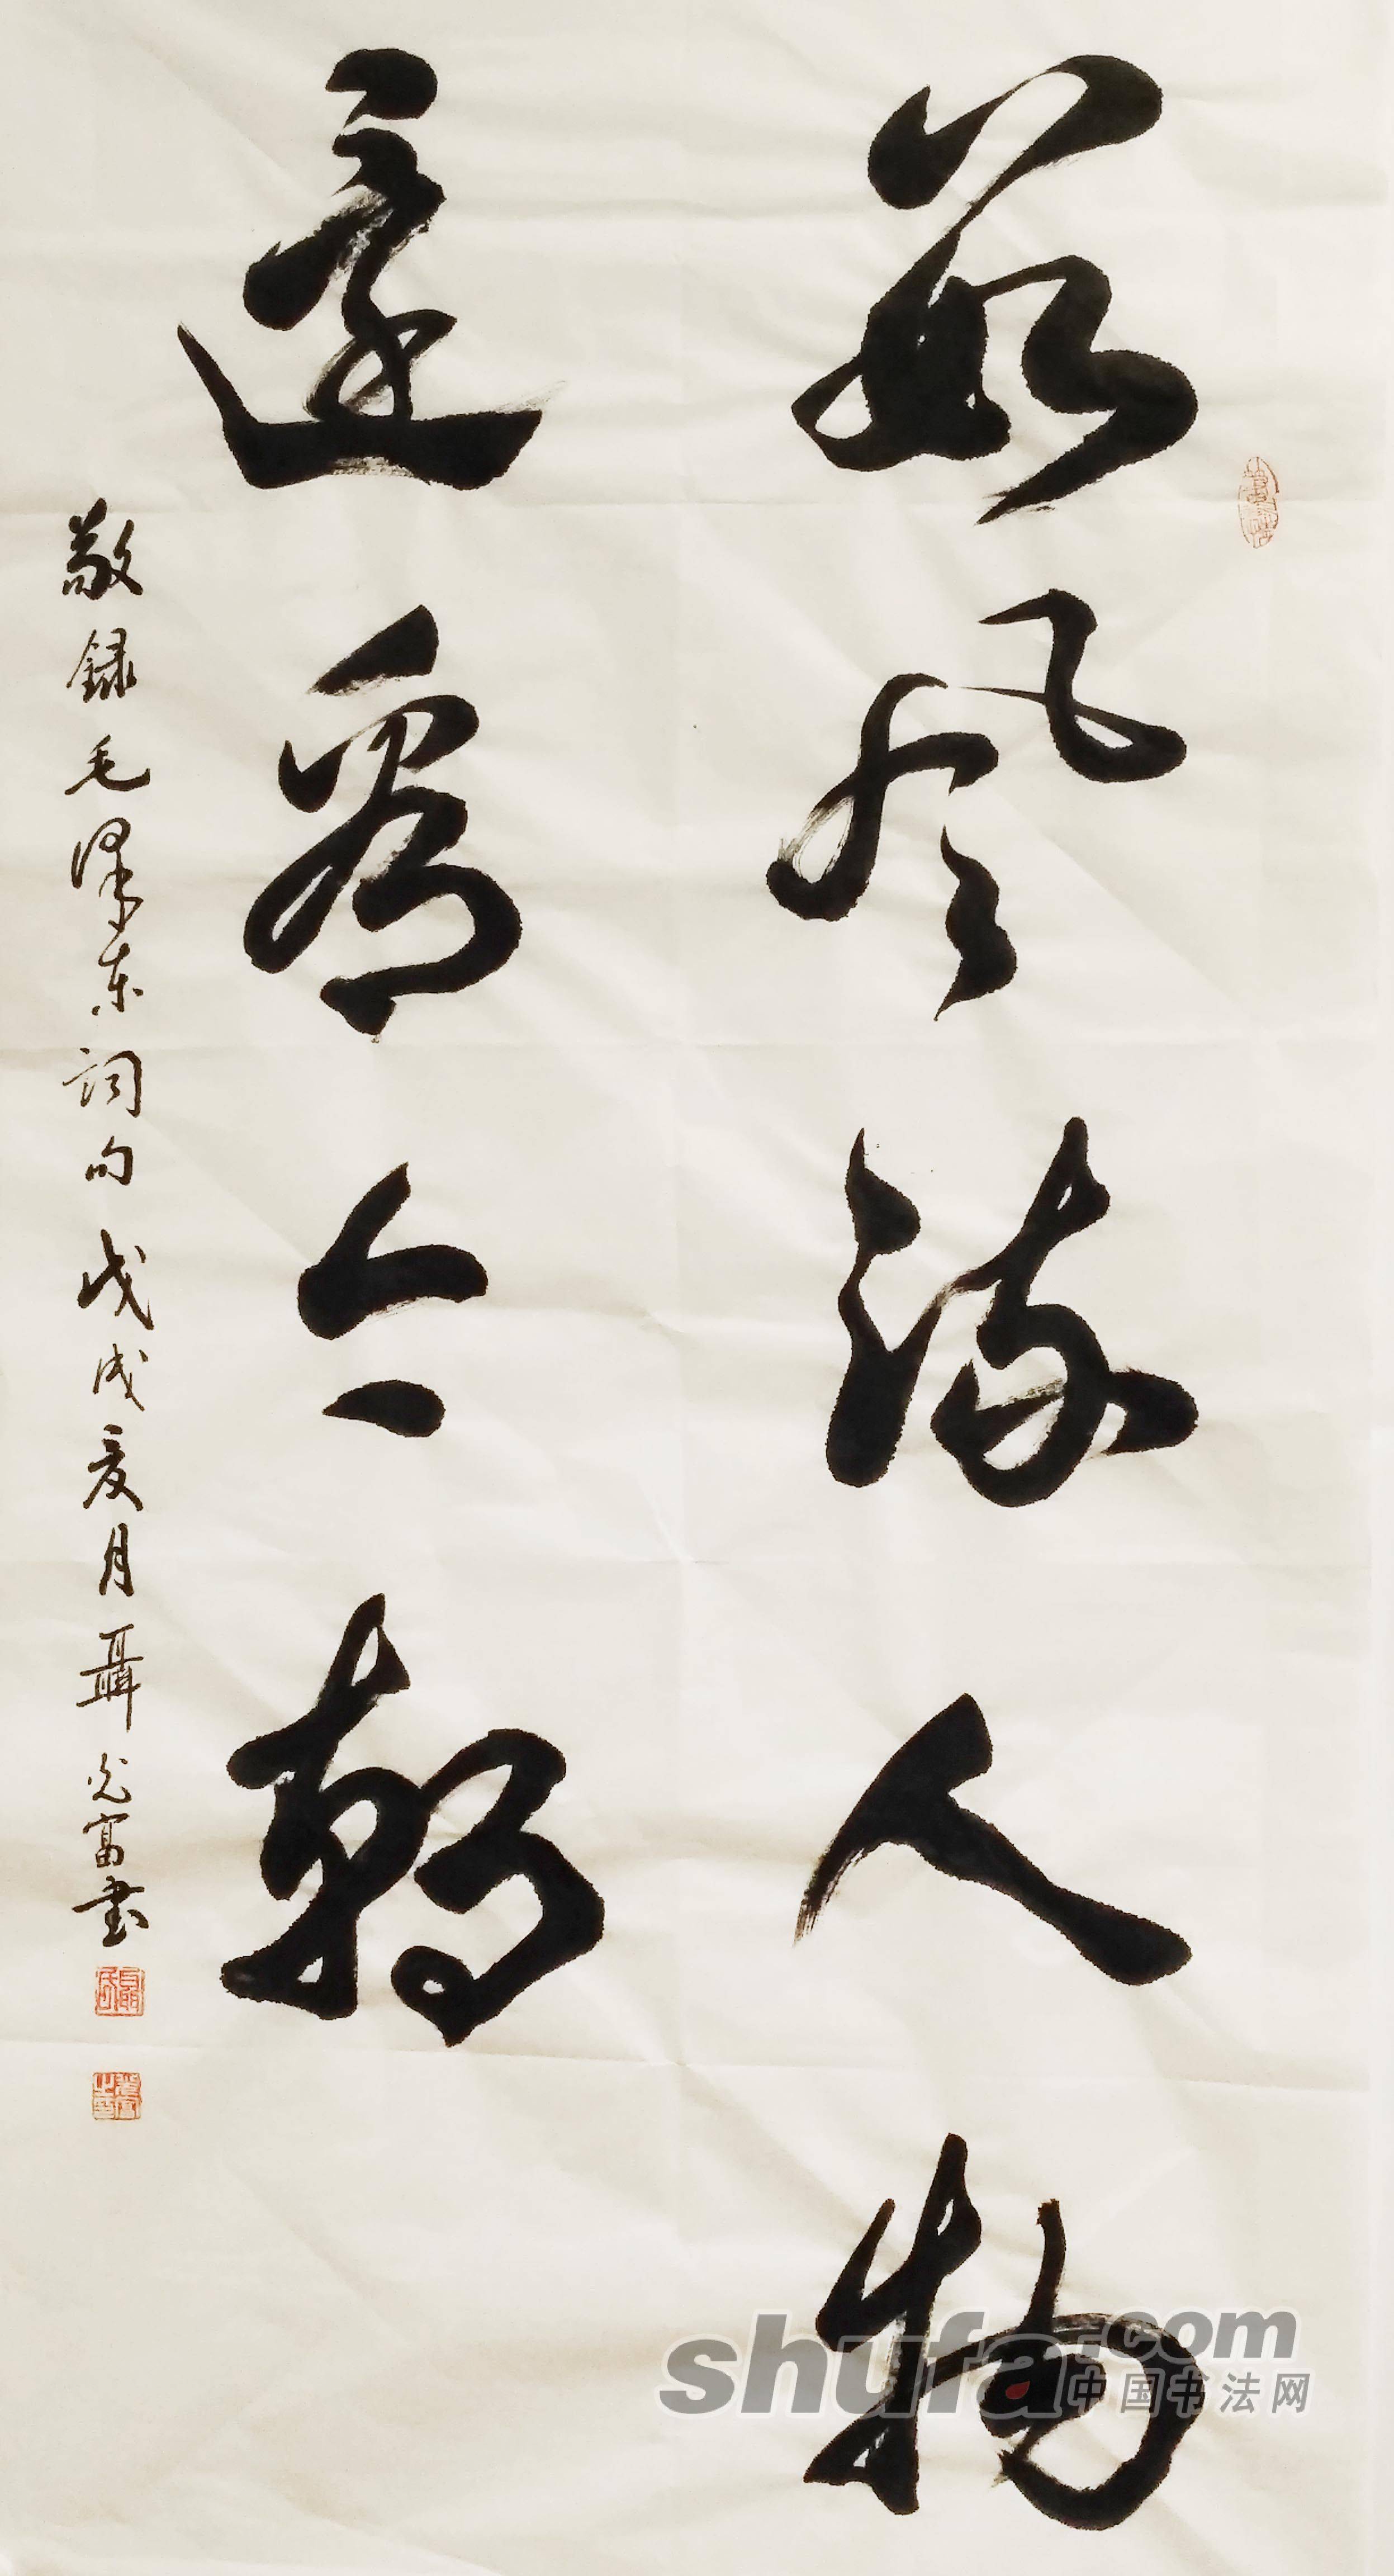 數風流人物
還看今朝
敬録毛澤东詞句戊戌夏月聶光富書
shufa.com
中国书法网